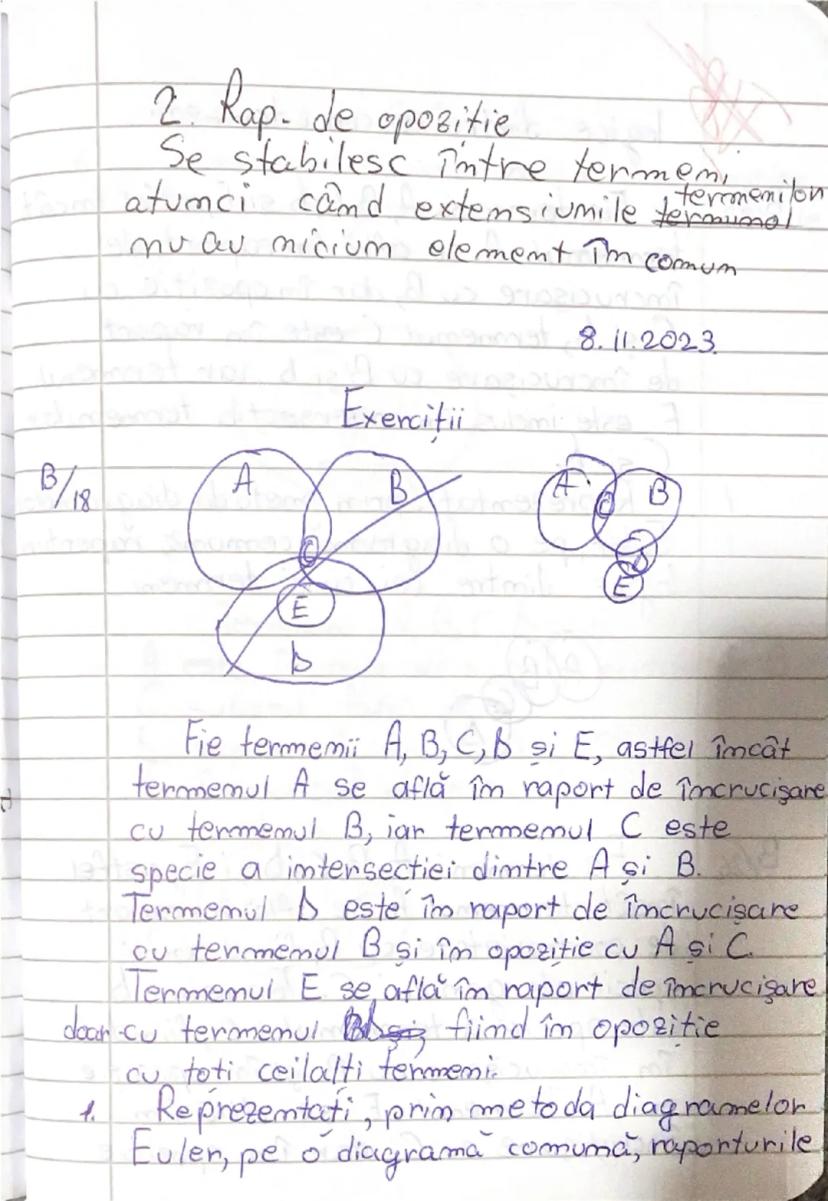 2. Rap. de opozitie
Se stabilesc între termeni
atunci când extensiunile termenilor
nu au niciun element în comun
8.11.2023.
Exerciții
B/18
A
B
C
E
D
A
B
C
D
E
Fie termenii A, B, C, D și E, astfel încât
termenul A se află în raport de încrucișare
cu termenul B, iar termenul C este
specie a intersectiei dintre A și B.
Termenul D este în raport de încrucișare
cu termenul B și în opoziție cu A și C.
Termenul E se află în raport de încrucișare
doar cu termenul D fiind în opoziție
cu toti ceilalti termeni.
1. Reprezentați, prin metoda diagramelor
Euler, pe o diagramă comună, raporturile